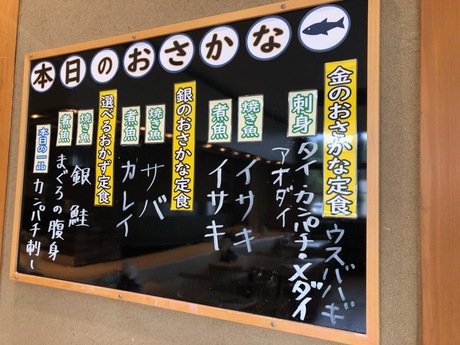 本日のおさかな
金のおさかな定食
ウスバハギ
刺身
タイ・カンパチ・メダイ
アオダイ
焼き魚
イサキ
煮魚
イサキ
銀のおさかな定食
焼き魚
サバ
煮魚
カレイ
選べるおかず定食
焼き魚
銀鮭
煮魚
まぐろの腹身
本日の一品
カンパチ刺し